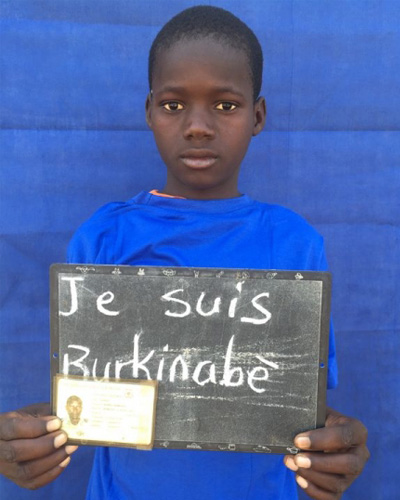 Je suis
Burkinabè